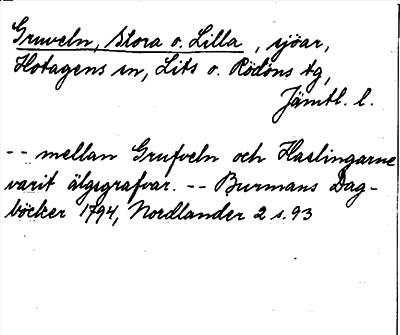 Gruveln, Stora o. Lilla, sjöar,
Hotagens sn, Lits o. Rödöns tg,
Jämtl. l.
-- mellan Grufveln och Haslingarne
varit älgsgrafvar. -- Burmans Dag-
böcker 1794, Nordlander 2 s. 93